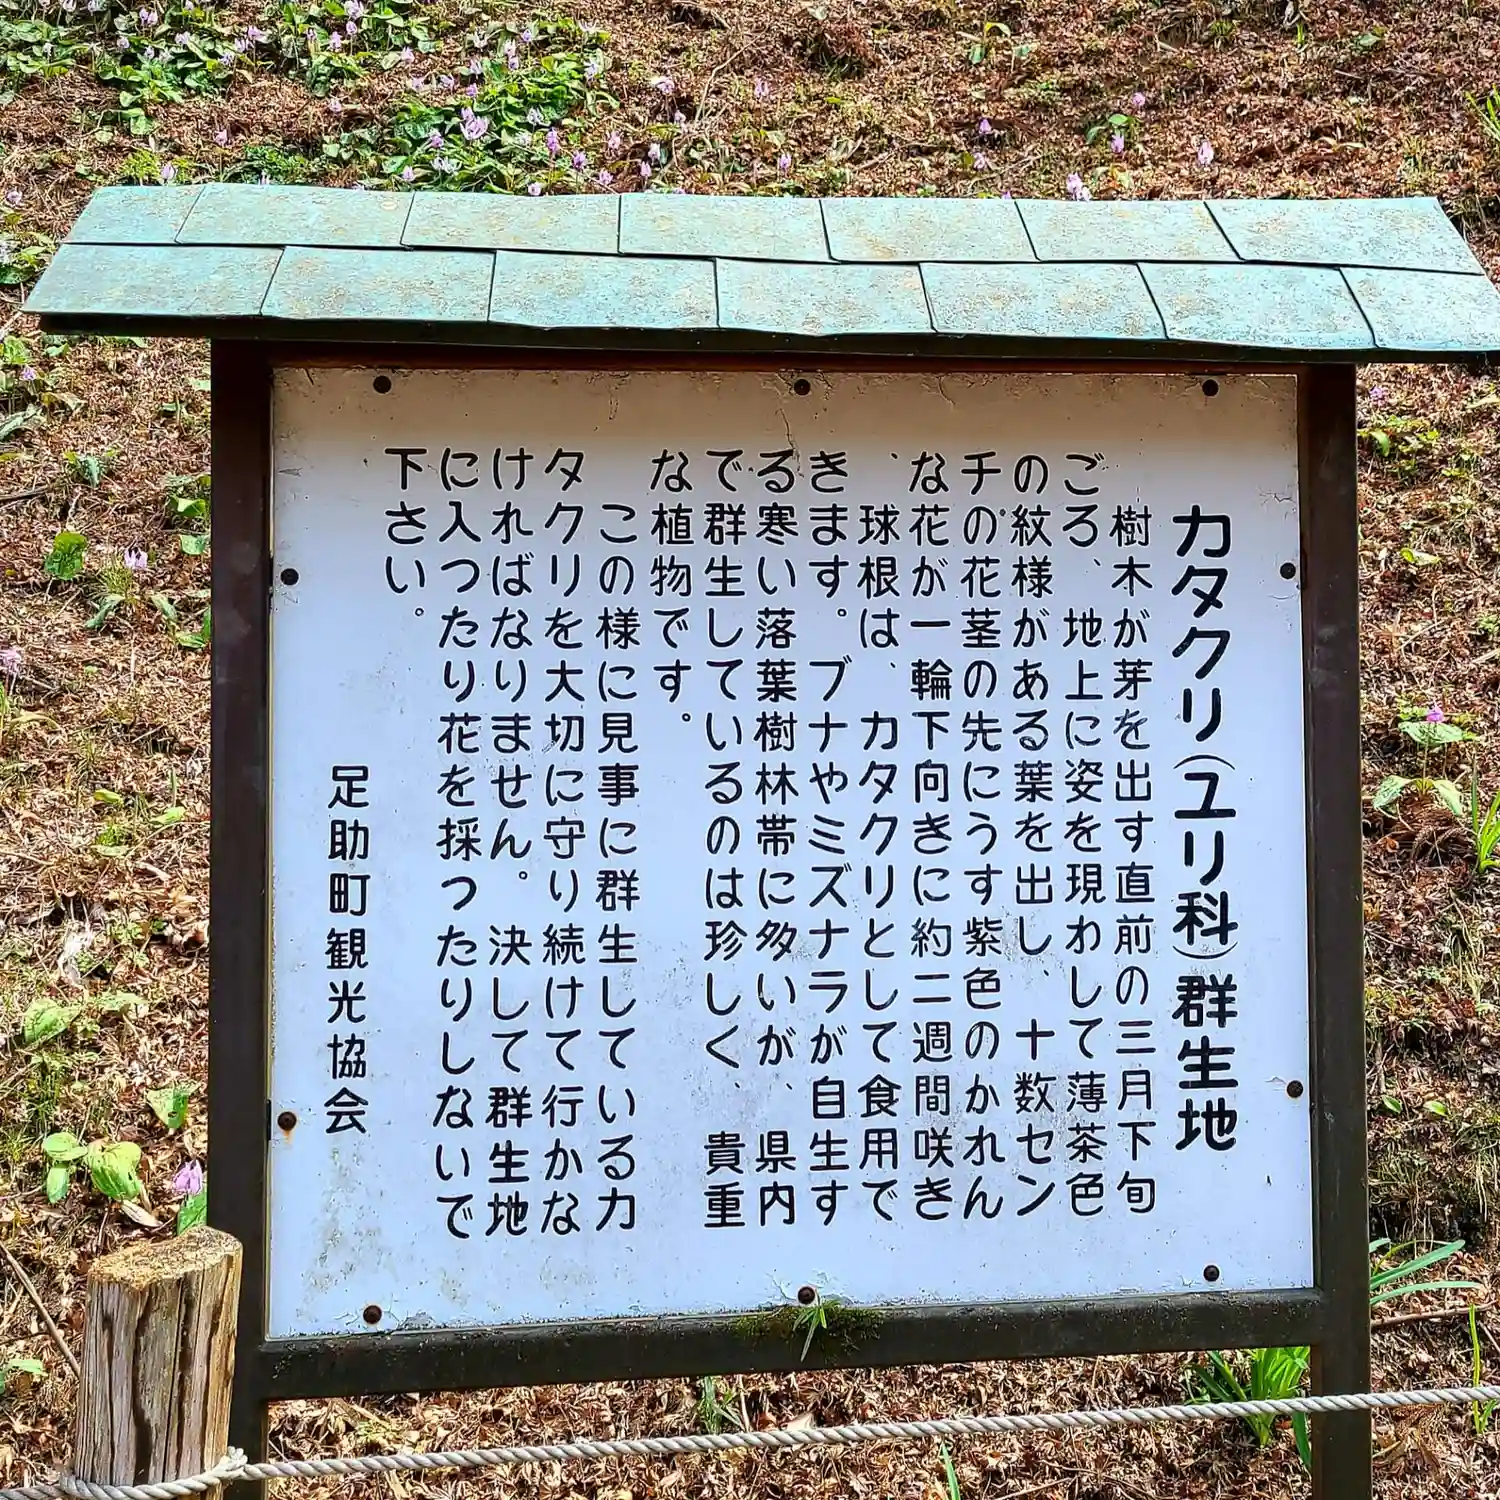 カタクリ(ユリ科)群生地
樹木が芽を出す直前の三月下旬
ごろ、地上に姿を現わして薄茶色
の紋様がある葉を出し、十数セン
チの花茎の先にうす紫色のかれん
な花が一輪下向きに約二週間咲き
、球根は、カタクリとして食用で
きます。ブナやミズナラが自生す
る寒い落葉樹林帯に多いが、県内
で群生しているのは珍しく、貴重
な植物です。
この様に見事に群生している力
タクリを大切に守り続けて行かな
ければなりません。決して群生地
に入つたり花を採つたりしないで
下さい。
足助町観光協会